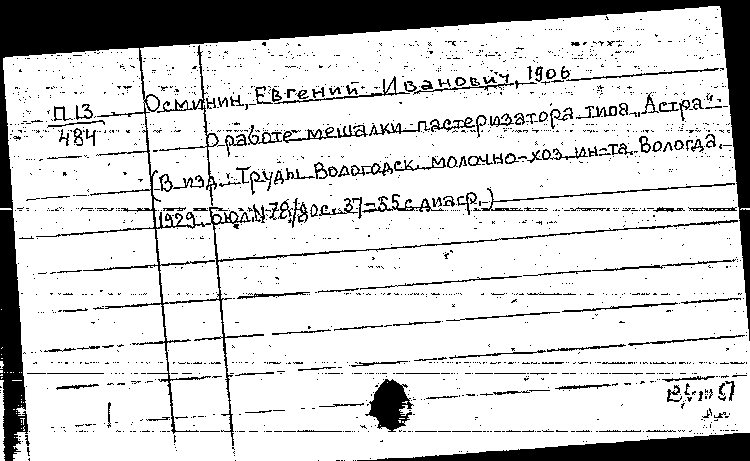 П 13
484
Осминин, Евгений Иванович, 1906
О работе мешалки пастеризатора типа „Астра“.
(В изд.: Труды Вологодск. молочно-хоз. ин-та. Вологда.
1929. бюл N 78/ 37-55 с диагр.)